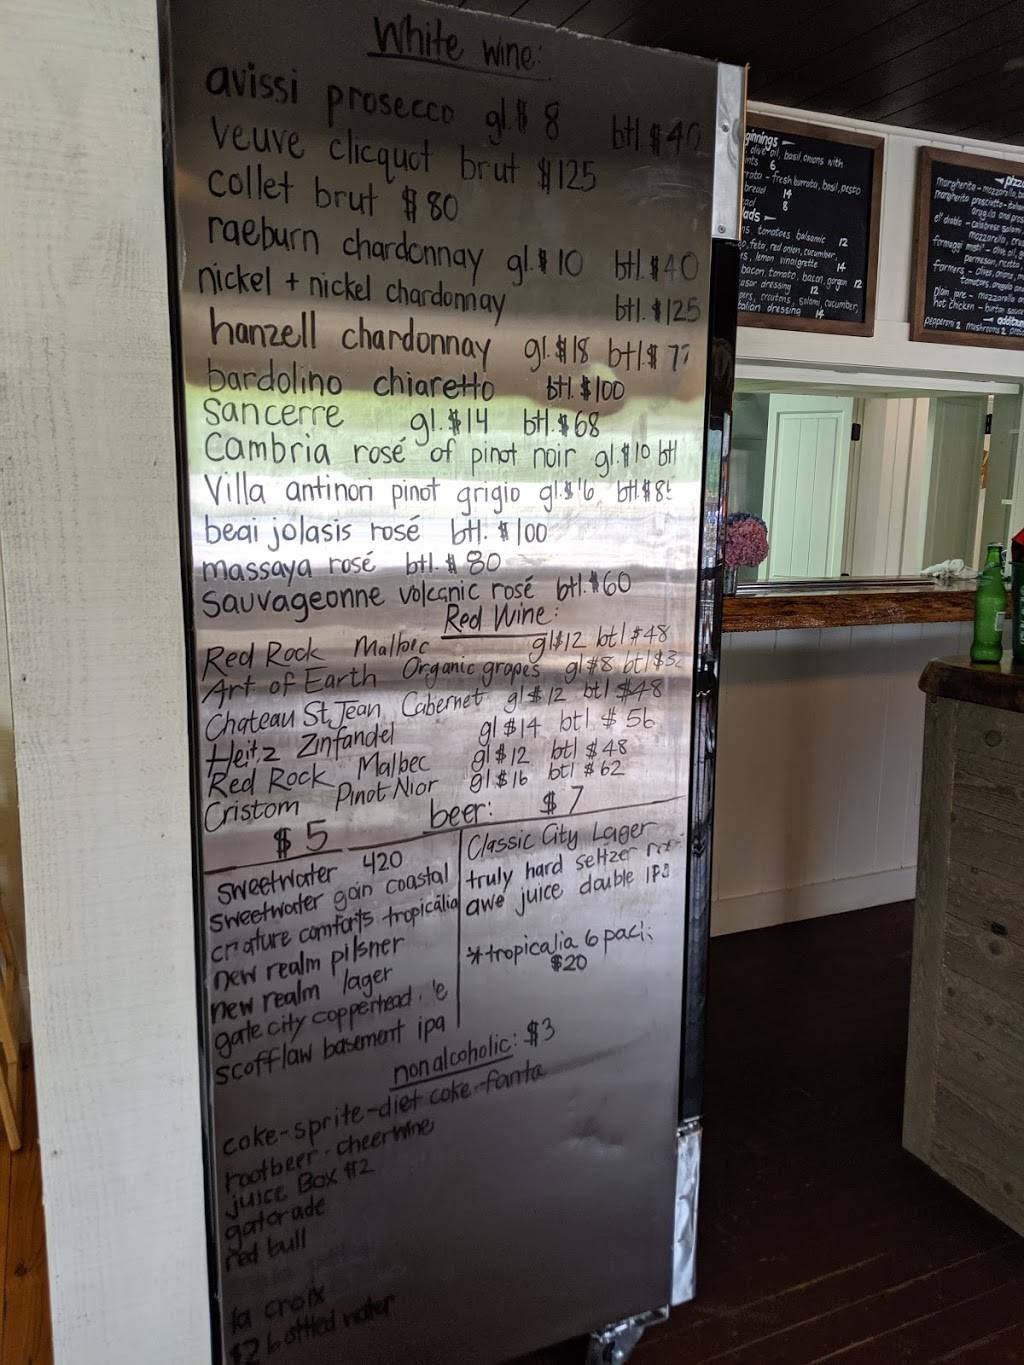 White wine:
avissi prosecco gl.$ 8 btl $40
veuve clicquot brut $125
collet brut $80
raeburn chardonnay gl.$10 btl.$40
nickel + nickel chardonnay btl.$125
hanzell chardonnay gl.$18 btl.$ 77
bardolino chiaretto btl.$100
Sancerre gl.$14 btl.$68
Cambria rosé of pinot noir gl.$10 btl
Villa antinori pinot grigio gl.$16 btl.$8
beaijolasis rosé btl.$100
massaya rosé btl.$ 80
Sauvageonne volcanic rosé btl.$60
Red Wine:
Red Rock Malbec gl$12 btl $48
Art of Earth Organic grapes gl$8 btl$32
Chateau St Jean Cabernet gl$12 btl $48
Heitz Zinfandel gl $14 btl $ 56
Red Rock Malbec gl$12 btl $48
Cristom Pinot Nior gl$16 btl $62
beer:
$5
sweetwater 420
sweetwater goin coastal
creature comforts tropicália
new realm pilsner
new realm lager
gate city copperhead
scofflaw basement ipa
$7
Classic City Lager
truly hard seltzer
awe juice double IPA
*tropicalia 6 pack
$20
nonalcoholic: $3
coke-sprite-diet coke-fanta
rootbeer-cheerwine
juice Box $2
gatorade
red bull
la croix
$2 bottled water
ginnings
olive oil, basil, onions with
6
fresh burrata, basil, pesto
bread 14
8
tomatoes balsamic 12
feta, red onion, cucumber,
lemon vinaigrette 14
bacon, tomato, bacon, gorgon 12
dressing 12
croutons, salami, cucumber,
italian dressing 14
pizza
margherita - mozzarella, ba
margherita prosciutto - italian
arugula and pros
el diablo - calabrese salami
mozzarella, cru
formaggi misti - olive oil, g
parmesan, ricotta
farmers - olives, onions,
tomatoes, arugula
plain jane - mozzarella an
hot chicken - buffalo sauce
pepperoni 2 mushrooms 2